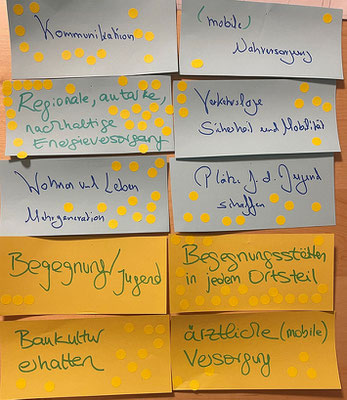 Kommunikation
(mobile)
Nahversorgung
Regionale, autarke,
nachhaltige
Energieversorgung
Verkehrslage
Sicherheit und Mobilität
Wohnen und Leben
Mehrgeneration
Platz f. d. Jugend
schaffen
Begegnung/
Jugend
Begegnungsstätten
in jedem Ortsteil
Baukultur
erhalten
ärztliche (mobile)
Versorgung